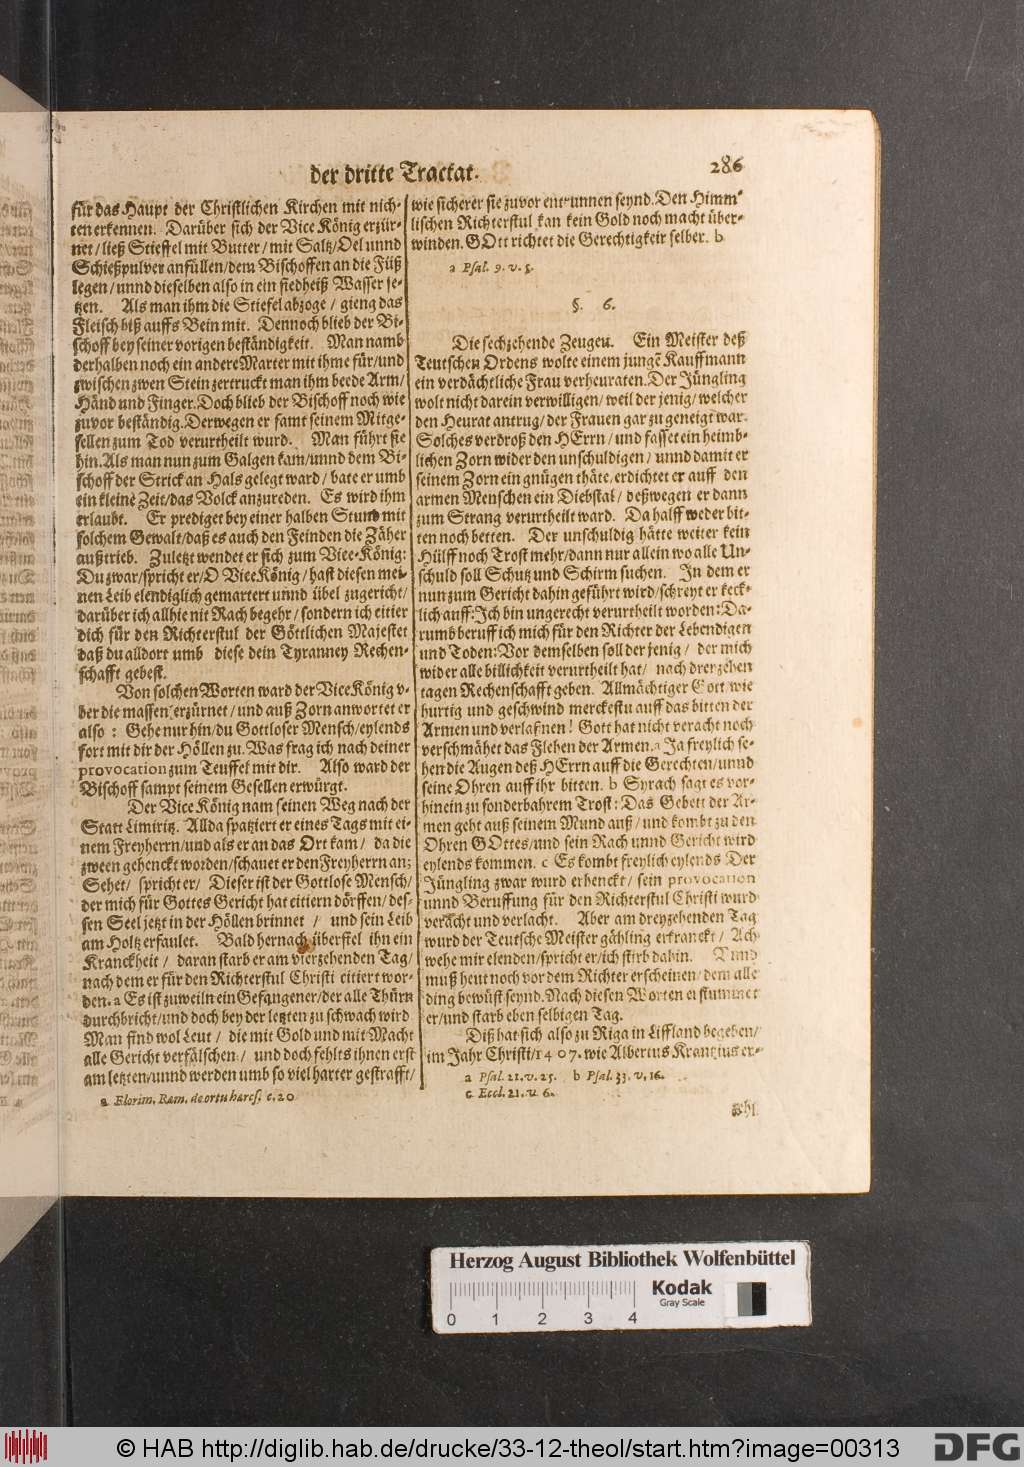 der dritte Tractat. 286
für das Haupt der Christlichen Kirchen mit nich-
ten erkennen. Darüber sich der Vice König erzür-
net / ließ Stieffel mit Butter / mit Saltz / Oel unnd
Schießpulver anfüllen / dem Bischoffen an die Füß
legen / unnd dieselben also in ein siedheiß Wasser se-
tzen. Als man ihm die Stiefel abzoge / gieng das
Fleisch biß auffs Bein mit. Dennoch blieb der Bi-
schoff bey seiner vorigen beständigkeit. Man namb
derhalben noch ein andere Marter mit ihme für / und
zwischen zwen Stein zertruckt man ihm beede Arm /
Händ und Finger. Doch blieb der Bischoff noch wie
zuvor beständig. Derwegen er samt seinem Mitge-
sellen zum Tod verurtheilt wurd. Man führt sie
hin. Als man nun zum Galgen kam / unnd dem Bi-
schoff der Strick an Hals gelegt ward / bate er umb
ein kleine Zeit / das Volck anzureden. Es wird ihm
erlaubt. Er prediget bey einer halben Stund mit
solchem Gewalt / daß es auch den Feinden die Zäher
außtrieb. Zuletzt wendet er sich zum Vice-König:
Du zwar / spricht er / O Vice König / hast diesen mei-
nen Leib elendiglich gemartert unnd übel zugericht /
darüber ich allhie nit Rach begehr / sondern ich citier
dich für den Richterstul der Göttlichen Majestet
daß du alldort umb diese dein Tyranney Rechen-
schafft gebest.
Von solchen Worten ward der Vice König v-
ber die massen erzürnet / und auß Zorn anwortet er
also : Gehe nur hin / du Gottloser Mensch / eylends
fort mit dir der Höllen zu. Was frag ich nach deiner
provocation zum Teuffel mit dir. Also ward der
Bischoff sampt seinem Gesellen erwürgt.
Der Vice König nam seinen Weg nach der
Statt Limiritz. Allda spatziert er eines Tags mit ei-
nem Freyherrn / und als er an das Ort kam / da die
zween gehenckt worden / schauet er den Freyherrn an:
Sehet / spricht er / Dieser ist der Gottlose Mensch /
der mich für Gottes Gericht hat citiern dörffen / des-
sen Seel jetzt in der Höllen brinnet / und sein Leib
am Holtz erfaulet. Bald hernach überfiel ihn ein
Kranckheit / daran starb er am vierzehenden Tag /
nach dem er für den Richterstul Christi citiert wor-
den. a Es ist zuweiln ein Gefangener / der alle Thürn
durchbricht / und doch bey der letzten zu schwach wird
Man find wol Leut / die mit Gold und mit Macht
alle Gericht verfälschen / und doch fehlts ihnen erst
am letzten / unnd werden umb so viel harter gestrafft /
a Florim. Ram. de ortu hæres. c. 20
wie sicherer sie zuvor entrunnen seynd. Den Himm-
lischen Richterstul kan kein Gold noch macht über-
winden. GOtt richtet die Gerechtigkeir selber. b
a Psal. 9. v. 5.
§. 6.
Die sechzehende Zeugen. Ein Meister deß
Teutschen Ordens wolte einem jungē Kauffmann
ein verdächtliche Frau verheuraten. Der Jüngling
wolt nicht darein verwilligen / weil der jenig / welcher
den Heurat antrug / der Frauen gar zu geneigt war.
Solches verdroß den HErrn / und fasset ein heimb-
lichen Zorn wider den unschuldigen / unnd damit er
seinem Zorn ein gnügen thäte, erdichtet er auff den
armen Menschen ein Diebstal / deßwegen er dann
zum Strang verurtheilt ward. Da halff weder bit-
ten noch betten. Der unschuldig hätte weiter kein
Hülff noch Trost mehr / dann nur allein wo alle Un-
schuld soll Schutz und Schirm suchen. In dem er
nun zum Gericht dahin geführt wird / schreyt er keck-
lich auff: Ich bin ungerecht verurtheilt worden: Da-
rumb beruff ich mich für den Richter der Lebendigen
und Toden: Vor demselben soll der jenig / der mich
wider alle billichkeit verurtheilt hat / nach dreyzehen
tagen Rechenschafft geben. Allmächtiger Gott wie
hurtig und geschwind merckestu auff das bitten der
Armen und verlaßnen ! Gott hat nicht veracht noch
verschmähet das Flehen der Armen. a Ja freylich se-
hen die Augen deß HErrn auff die Gerechten / unnd
seine Ohren auff ihr bitten. b Syrach sagt es vor-
hinein zu sonderbahrem Trost : Das Gebett der Ar-
men geht auß seinem Mund auß / und kombt zu den
Ohren GOttes / und sein Rach unnd Gericht wird
eylends kommen. c Es kombt freylich eylends Der
Jüngling zwar wurd erhenckt / sein provocation
unnd Beruffung für den Richterstul Christi wurd
veracht und verlacht. Aber am dreyzehenden Tag
wurd der Teutsche Meister gähling erkranckt / Ach
wehe mir elenden / spricht er / ich stirb dahin. Unnd
muß heut noch vor dem Richter erscheinen / dem alle
ding bewüst seynd. Nach diesen Worten erstummet
er / und starb eben selbigen Tag.
Diß hat sich also zu Riga in Liffland begeben /
im Jahr Christi / 1407. wie Albertus Krantzius er-
a Psal. 21. v. 25. b Psal. 33. v. 16.
c Eccl. 21. v. 6.
zehl.
Herzog August Bibliothek Wolfenbüttel
0 1 2 3 4
Kodak
Gray Scale
© HAB http://diglib.hab.de/drucke/33-12-theol/start.htm?image=00313
DFG